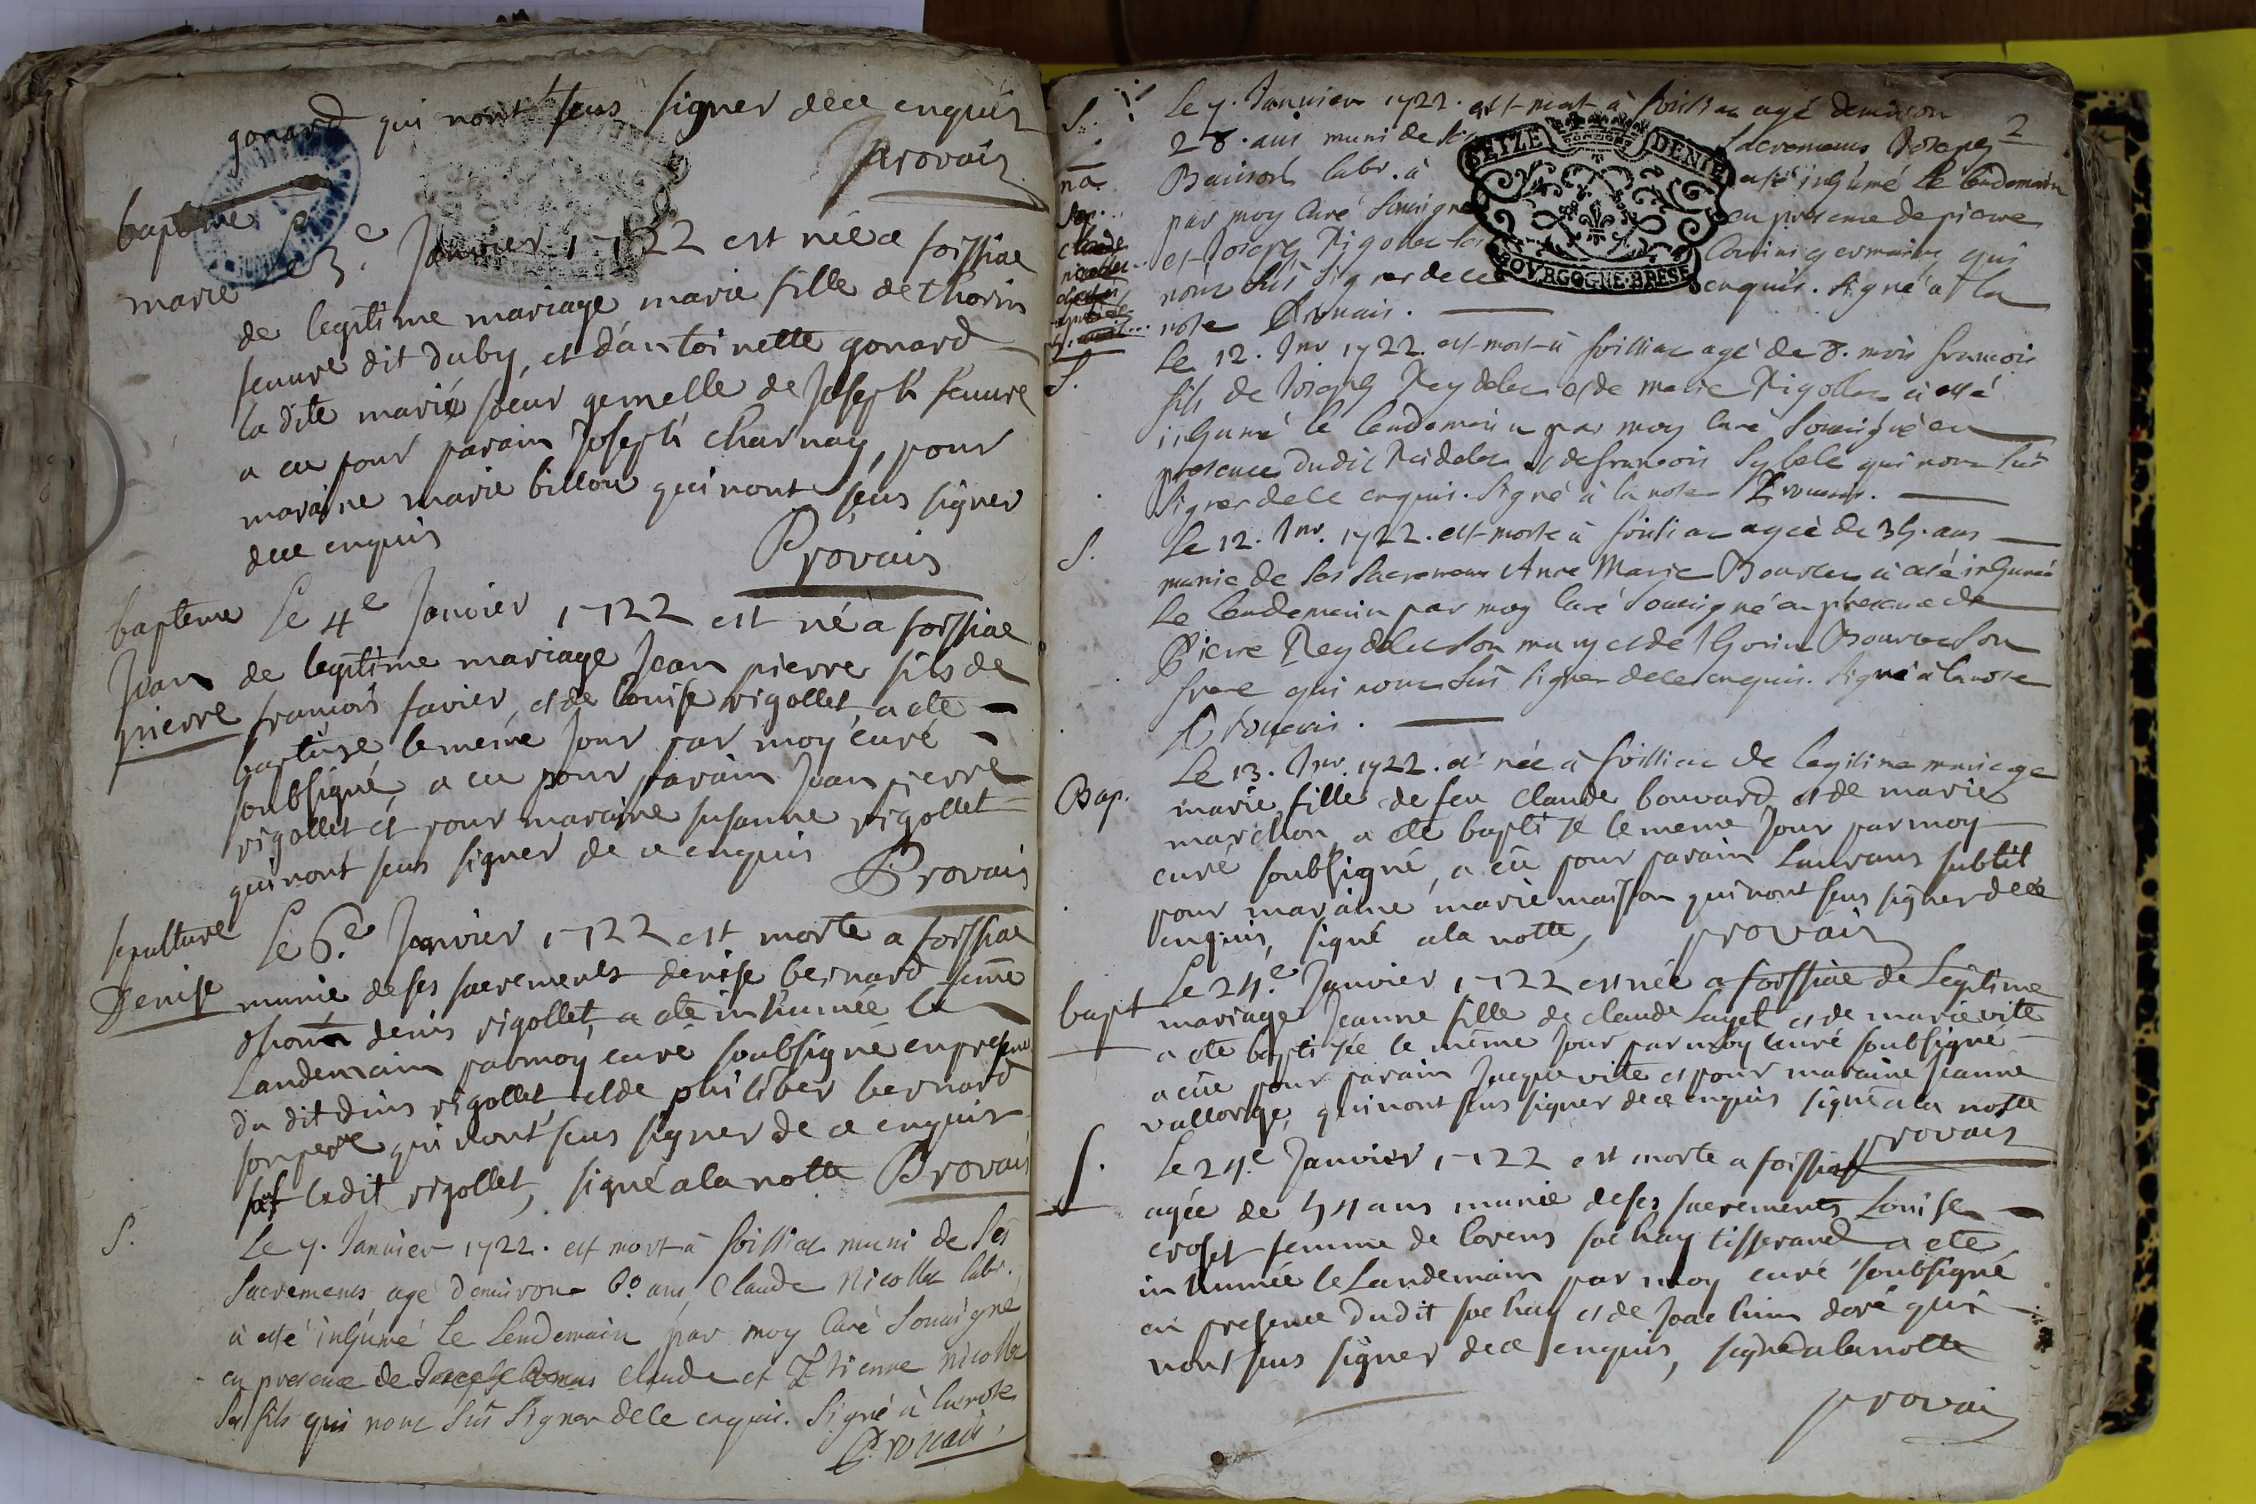 gonard qui nont sceus signer de ce enquis
Provais
bapteme
marie
Le 3.e Janvier 1722 est née a foissiac
de legitime mariage marie fille de thorin
feuvre dit duby, et d'antoinette gonard
la dite marie soeur gemelle de Joseph feuvre
a eu pour parain Joseph charnay, pour
maraine marie billon qui nont sceus signer
de ce enquis
Provais
bapteme
Jean
pierre
Le 4e Janvier 1722 est né a foissiac
de legitime mariage Jean pierre fils de
francois favier, et de louise rigollet, a ete
baptizé le meme Jour par moy curé
soubsigné, a eu pour parain Jean pierre
rigollet et pour maraine susanne rigollet
qui nont sceus signer de ce enquis
Provais
sepulture
Denise
Le 6.e Janvier 1722 est morte a foissiac
munie de ses sacrements denise bernard feme
denis rigollet, a ete inhumée le
Landemain par moy curé soubsigné en presence
du dit denis rigollet, et de philiber bernard
son pere qui nont sceus signer de ce enquis
ledit rigollet, signé a la notte Provais
S.
Le 7. Janvier 1722. est mort à foissiac muni de ses
Sacremens, agé d'environ 60 ans Claude Nicollet labr.
à esté inhumé Le Lendemain par moy Curé Soussigné
en presence de Claude et Etienne Nicollet
Ses fils qui nont sus Signer de ce enquis. Signé à la note
Provais.
2
S.
Le 7. Janvier 1722. est mort à foissiac agé denviron
28. ans muni de Sacremens Joseph
labr. à esté inhumé Le lendemain
par moy Curé Soussigné en presence de pierre
et Joseph Rigollet Cousins germains qui
nont sus Signer de ce enquis. Signé à la
note Provais.
SEIZE DENIE
BOVRGOGNE·BRESE
S.
Le 12. Jnr 1722. est mort à foissiac agé de 8. mois francois
fils de Joseph Reydelet et de marie Rigollet à esté
inhumé le lendemain par moy Curé Soussigné en
presence dudit Reidelet et de francois qui nont sus
Signer de ce enquis. Signé à la note Provais.
S.
Le 12. Jnr. 1722. est morte à foissiac agée de 35. ans
munie de Ses Sacremens Anne Marie Bourcet à esté inhumée
Le Lendemain par moy Curé Soussigné en presence de
Pierre Reydelet Son mary et de thorin Bourcet Son
frere qui nont sus signer de ce enquis. Signé à la note
Provais.
Bap.
Le 13. Jnr. 1722. est née à foissiac de legitime mariage
marie fille de feu claude bouvard et de marie
marchon a ete baptizé le meme Jour par moy
curé soubsigné, a eu pour parain Laurans subtil
pour maraine marie maisson qui nont sceus signer de ce
enquis, signé a la notte, provais
bapt
Le 24.e Janvier 1722 est née a foissiac de Legitime
mariage Jeanne fille de claude Layet et de marie vite
a ete baptizée le même Jour par moy curé soubsigné
a eue pour parain Jacque vite et pour maraine Jeanne
vallorge, qui nont sceus signer de ce enquis signé a la notte
provais
S.
Le 24.e Janvier 1722 est morte a foissiac
agée de 54 ans munie de ses sacrements Louise
croset femme de lorens sochay tisserand a ete
inhumée le Landemain par moy curé soubsigné
en presence du dit sochay et de Joachim doré qui
nont sceus signer de ce enquis, signé a la notte
provais